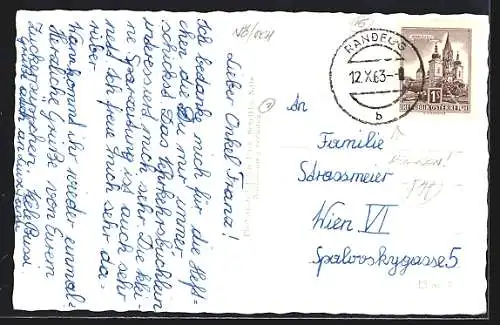 NB/
Lieber Onkel Franz!
Ich bedanke mich für die Hef-
cher die Du mir immer
schickst. Das Verkehrsbüchlein
interessiert mich sehr. Die klei
ne Sparzeitung ist auch sehr
nett. Ich freue mich sehr da-
rüber.
Wann kommt ihr wieder einmal?
Herzliche Grüße von Eurem
Zuckergoscherl. Viele Bussi.
Grüße auch an
RANDEGG
12.X.63-
b
REPUBLIK ÖSTERREICH
1S
An
Familie
Strassmeier
Wien VI
Spalovskygasse 5